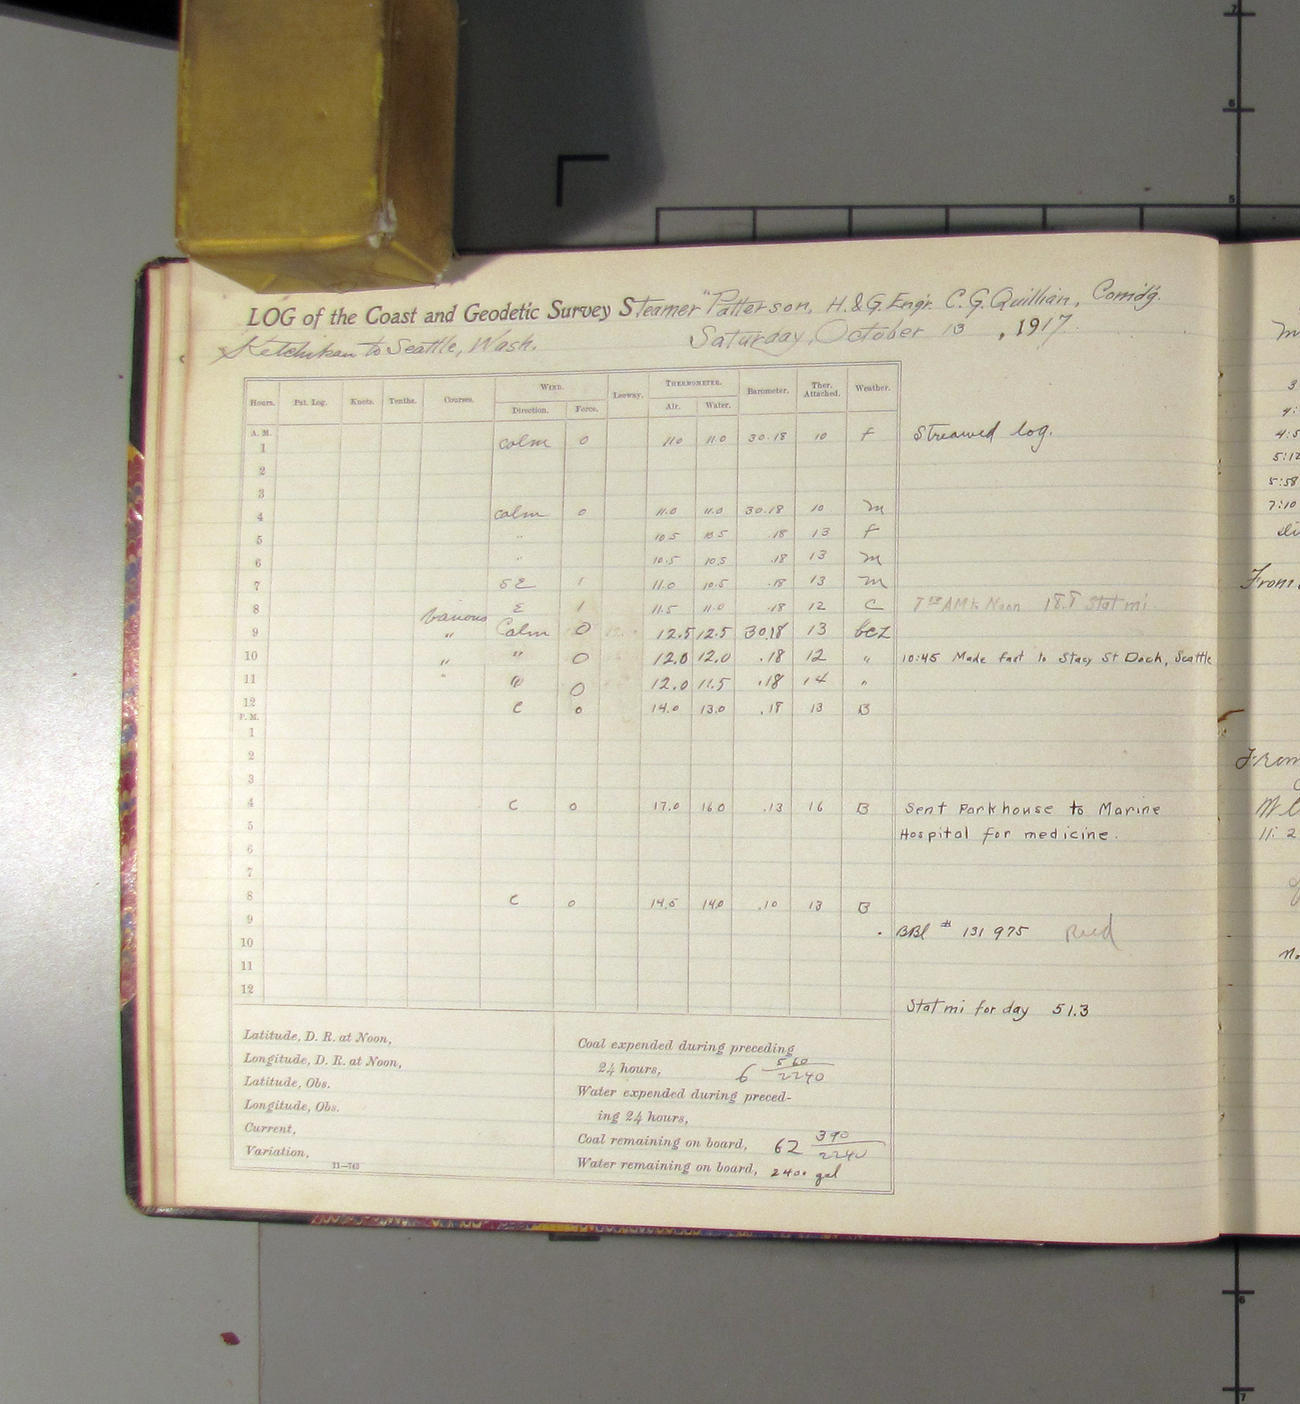 LOG of the Coast and Geodetic Survey Steamer "Patterson, H.&G.Engr. C.G.Quillian, Comdg.
Ketchikan to Seattle, Wash. Saturday, October 13, 1917.
Hours. Pat. Log. Knots. Tenths. Courses. WIND. Leeway. THERMOMETER. Barometer. Ther. Attached. Weather.
Direction. Force. Air. Water.
A. M.
1 calm 0 11.0 11.0 30.18 10 f Streamed log.
2
3
4 calm 0 11.0 11.0 30.18 10 m
5 " 10.5 10.5 .18 13 f
6 " 10.5 10.5 .18 13 m
7 SE 1 11.0 10.5 .18 13 m
8 Various E 1 11.5 11.0 .18 12 C AM to Noon 18.8 Stat mi.
9 " Calm 0 12.5 12.5 30.18 13 bcz
10 " " 0 12.0 12.0 .18 12 " 10:45 Made fast to Stacy St Dock, Seattle
11 " " 0 12.0 11.5 .18 14 "
12 C 0 14.0 13.0 .18 13 B
P. M.
1
2
3
4 C 0 17.0 16.0 .13 16 B Sent Parkhouse to Marine
5 Hospital for medicine.
6
7
8 C 0 14.5 14.0 .10 13 B
9 BBl # 131 975
10
11
12
Stat mi for day 51.3
Latitude, D. R. at Noon,
Longitude, D. R. at Noon,
Latitude, Obs.
Longitude, Obs.
Current,
Variation,
11—743
Coal expended during preceding
24 hours, 6 560/2240
Water expended during preced-
ing 24 hours,
Coal remaining on board, 62 390/2240
Water remaining on board, 2400 gal
3
4:
4:5
5:12
5:58
7:10
From
From
11: 2